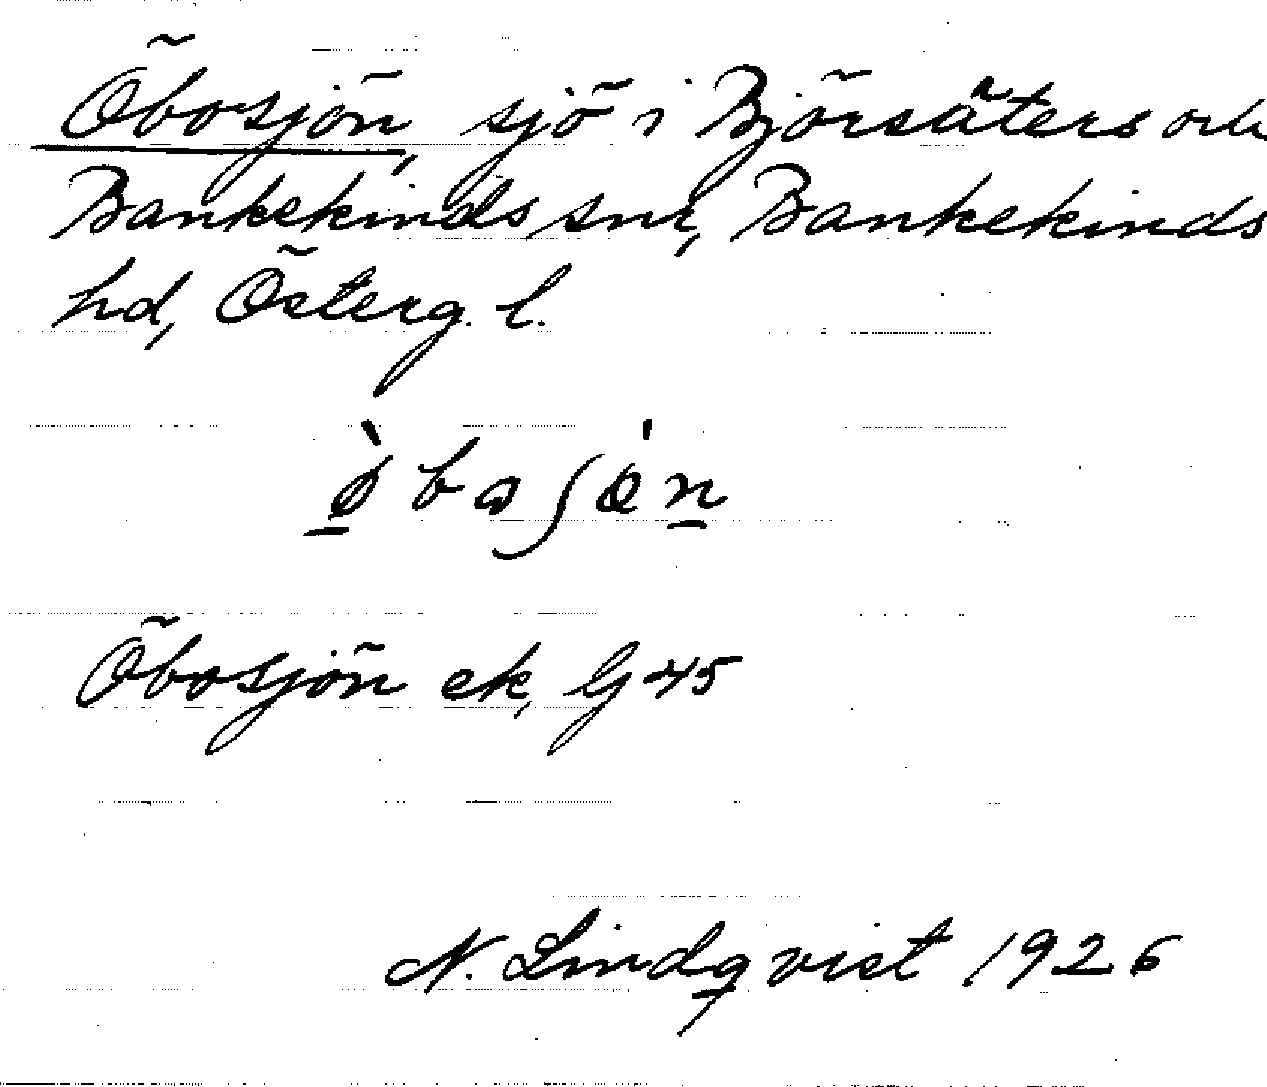 Öbosjön, sjö i Björsäters och
Bankekinds snr, Bankekinds
hd, Österg. l.
Öbosjön ek, G 45
N. Lindqvist 1926